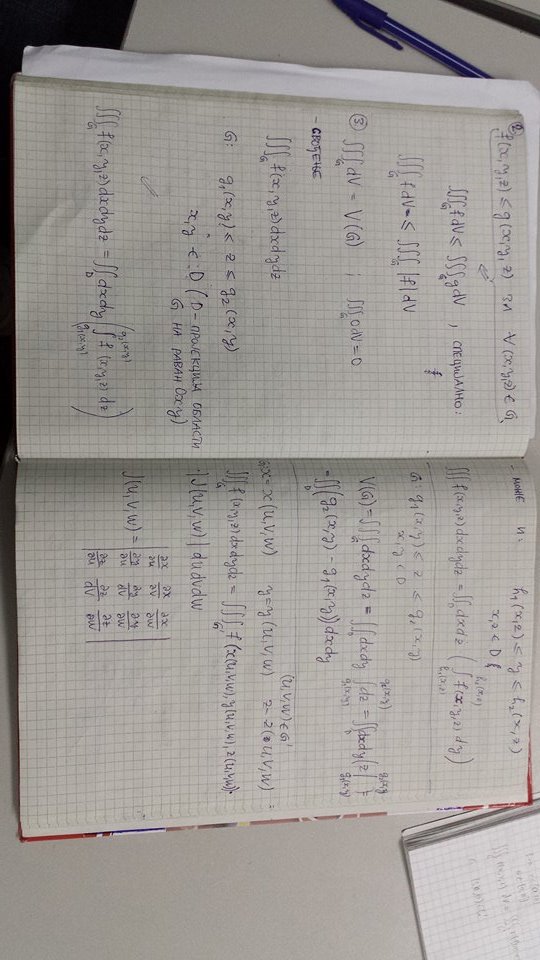 ② f(x,y,z) ≤ g(x,y,z) ЗА ∀(x,y,z) ∈ G
∭_G f dV ≤ ∭_G g dV , СПЕЦИЈАЛНО:
∭_G f dV ≤ ∭_G |f| dV
③ ∭_G dV = V(G) ; ∭_G 0 dV = 0
- СВОЂЕЊЕ
∭_G f(x,y,z) dx dy dz
G: g₁(x,y) ≤ z ≤ g₂(x,y)
x,y ∈ D (D - ПРОЈЕКЦИЈА ОБЛАСТИ
G НА РАВАН Oxy)
∭_G f(x,y,z) dx dy dz = ∬_D dx dy ( ∫_{g₁(x,y)}^{g₂(x,y)} f(x,y,z) dz )
- МОЖЕ И: h₁(x,z) ≤ y ≤ h₂(x,z)
x,z ∈ D
∭_G f(x,y,z) dx dy dz = ∬_D dx dz ( ∫_{h₁(x,z)}^{h₂(x,z)} f(x,y,z) dy )
G: g₁(x,y) ≤ z ≤ g₂(x,y)
x,y ∈ D
V(G) = ∭_G dx dy dz = ∬_D dx dy ∫_{g₁(x,y)}^{g₂(x,y)} dz = ∬_D dx dy (z |_{g₁(x,y)}^{g₂(x,y)}) =
= ∬_D (g₂(x,y) - g₁(x,y)) dx dy
(u,v,w) ∈ G'
x = x(u,v,w) y = y(u,v,w) z = z(u,v,w)
∭_G f(x,y,z) dx dy dz = ∭_{G'} f(x(u,v,w), y(u,v,w), z(u,v,w)) ·
|J(u,v,w)| du dv dw
J(u,v,w) = | ∂x/∂u ∂x/∂v ∂x/∂w |
| ∂y/∂u ∂y/∂v ∂y/∂w |
| ∂z/∂u ∂z/∂v ∂z/∂w |